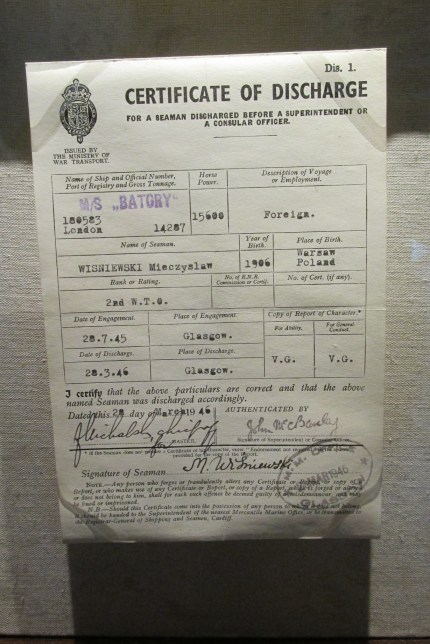 Dis. 1.
CERTIFICATE OF DISCHARGE
FOR A SEAMAN DISCHARGED BEFORE A SUPERINTENDENT OR
A CONSULAR OFFICER.
ISSUED BY
THE MINISTRY OF
WAR TRANSPORT.
Name of Ship and Official Number,
Port of Registry and Gross Tonnage.
Horse
Power.
Description of Voyage
or Employment.
M/S „BATORY"
180583
London 14287
15600
Foreign.
Name of Seaman.
Year of
Birth.
Place of Birth.
WISNIEWSKI Mieczyslaw
1906
Warsaw
Poland
Rank or Rating.
No. of R.N.R.
Commission or Certif.
No. of Cert. (if any).
2nd W.T.O.
Date of Engagement.
Place of Engagement.
Copy of Report of Character.*
For Ability.
For General
Conduct.
28.7.45
Glasgow.
Date of Discharge.
Place of Discharge.
V.G.
V.G.
28.3.46
Glasgow.
I certify that the above particulars are correct and that the above
named Seaman was discharged accordingly.
Dated this 28 day of March 1946
AUTHENTICATED BY
MASTER.
Signature of Superintendent or Consular
* If the Seaman does not
Signature of Seaman M. Wisniewski
1946
NOTE.—Any person who forges or fraudulently alters any Certificate or Report, or copy of a
Report, or who makes use of any Certificate or Report, or copy of a Report, which is forged or altered
or does not belong to him, shall for each such offence be deemed guilty of a misdemeanour and may
be fined or imprisoned.
N.B.—Should this Certificate come into the possession of any person to whom it does not belong,
it should be handed to the Superintendent of the nearest Mercantile Marine Office, or be transmitted to
the Registrar-General of Shipping and Seamen, Cardiff.